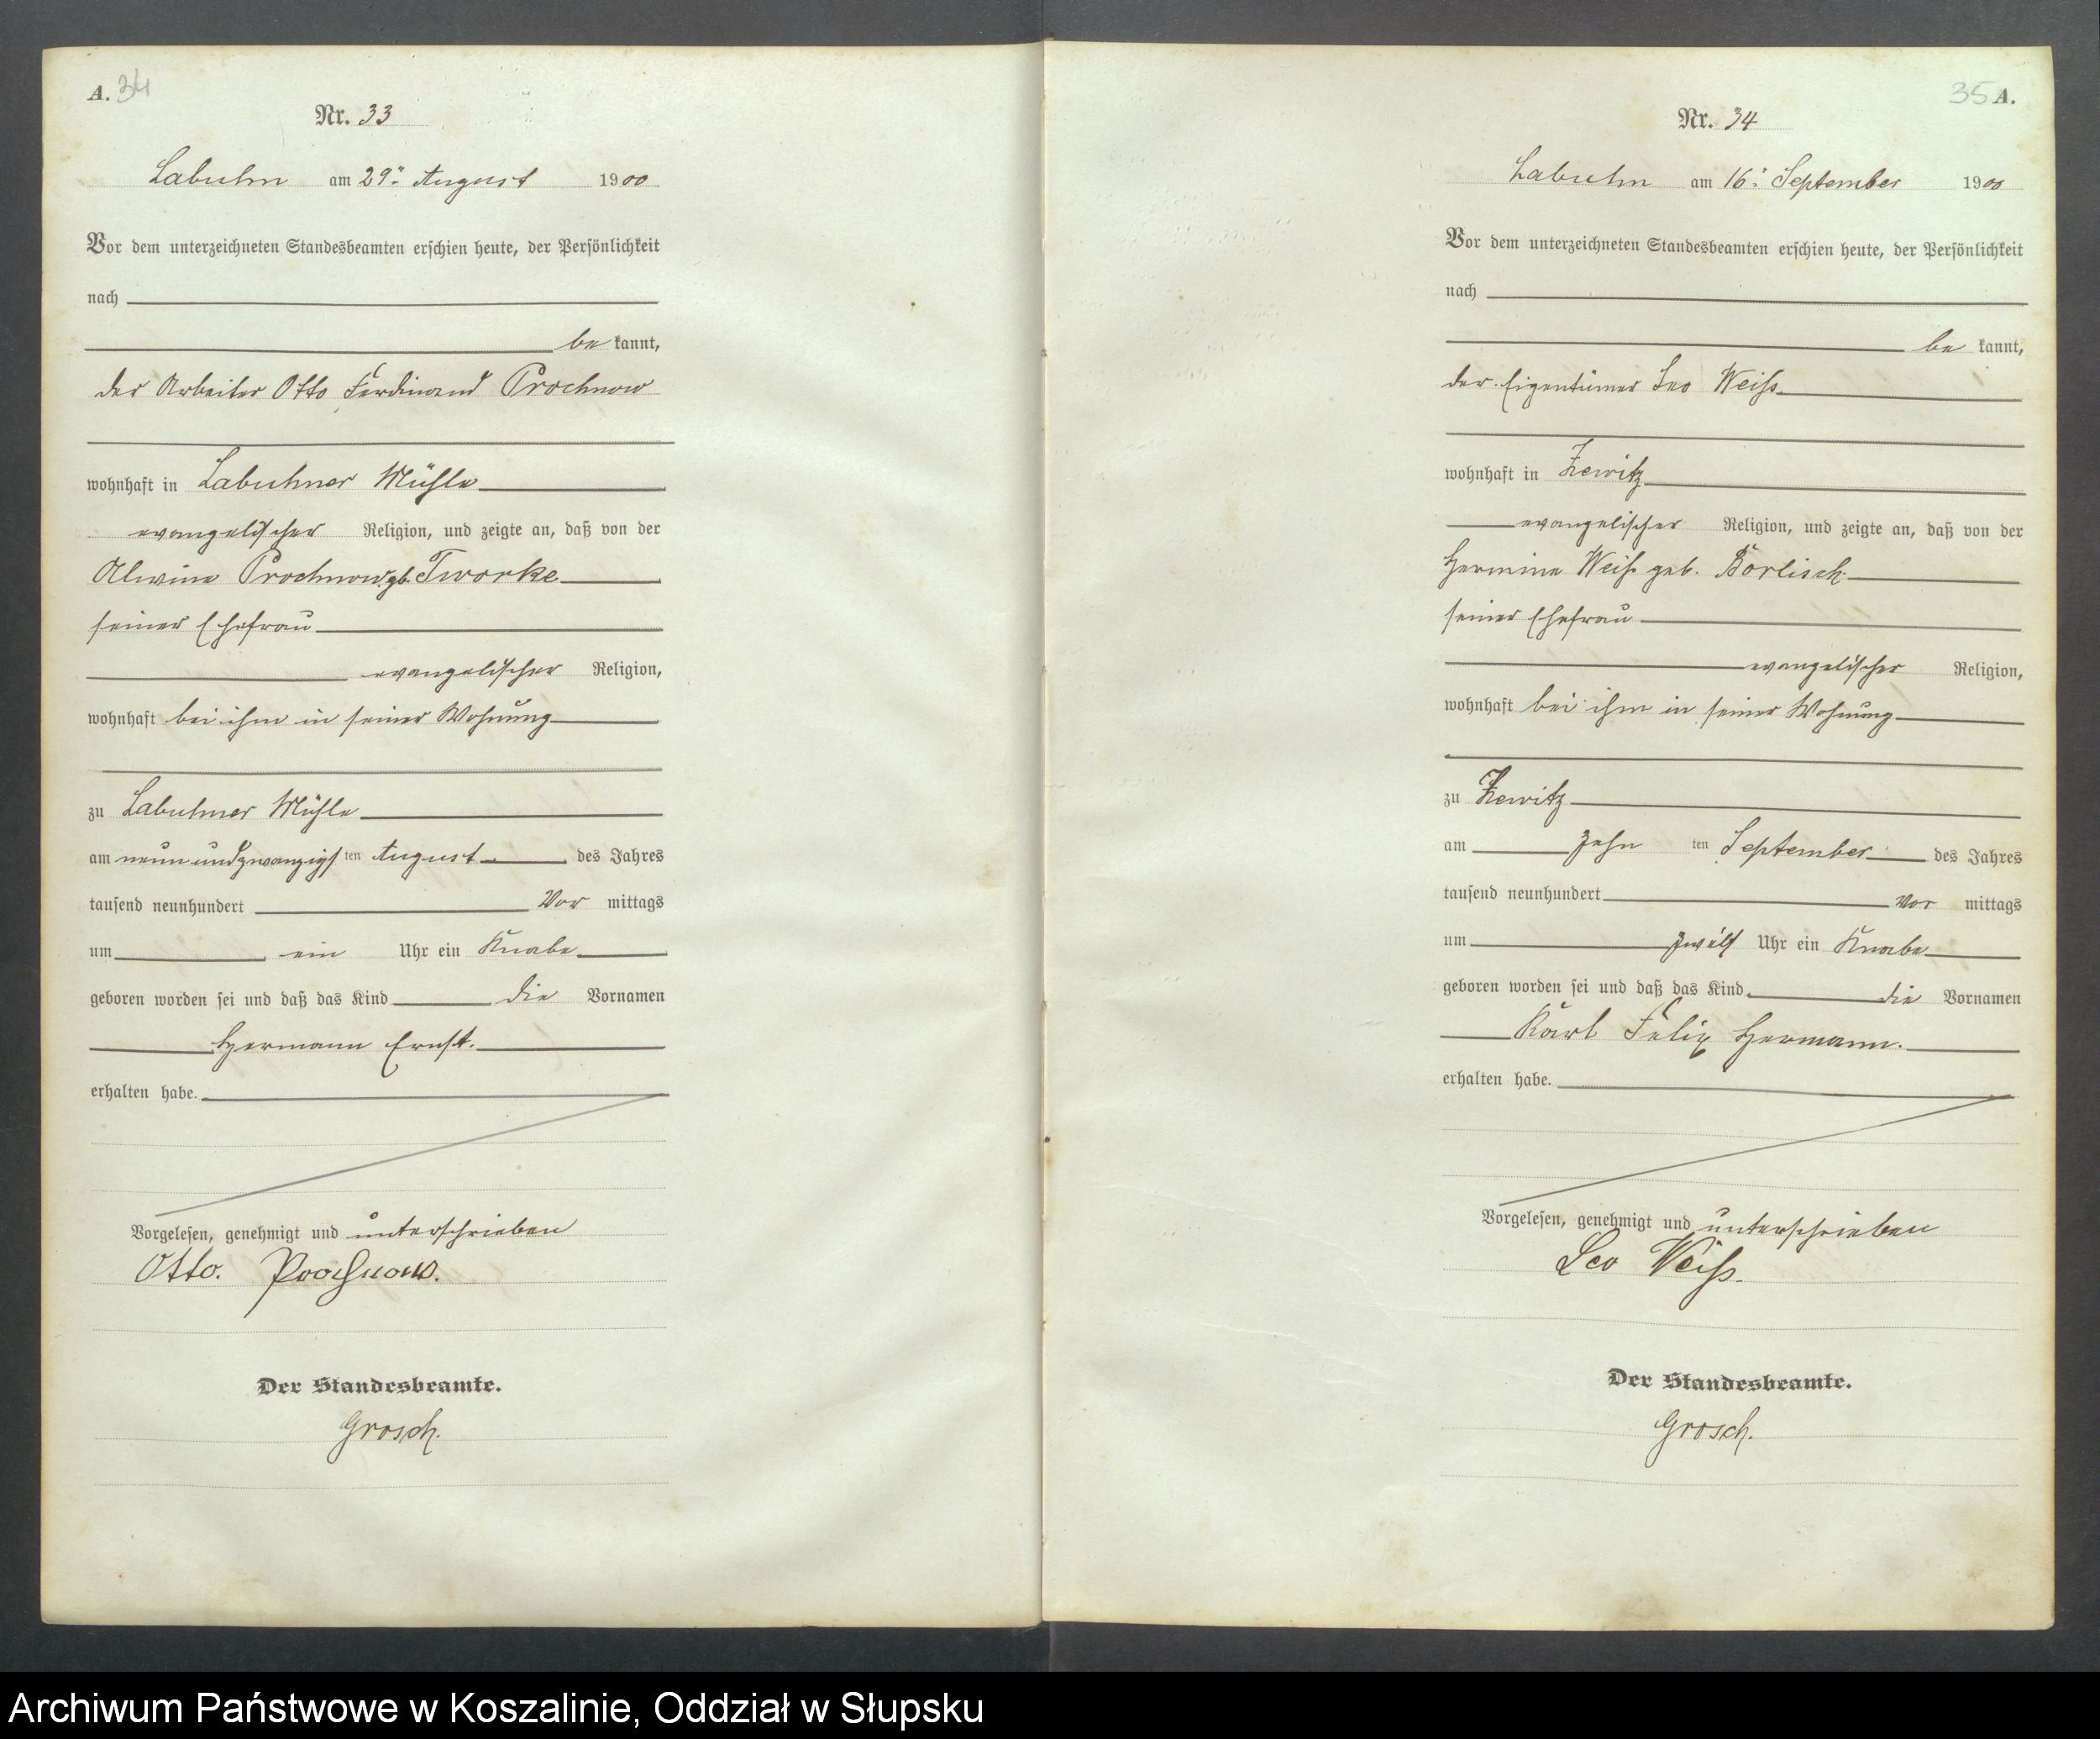 A. 34
Nr. 33
Labuhn am 29. August 1900
Vor dem unterzeichneten Standesbeamten erschien heute, der Persönlichkeit
nach
be kannt,
der Arbeiter Otto Ferdinand Prochnow
wohnhaft in Labuhner Mühle
evangelischer Religion, und zeigte an, daß von der
Alwine Prochnow gb. Tworke
seiner Ehefrau
evangelischer Religion,
wohnhaft bei ihm in seiner Wohnung
zu Labuhner Mühle
am neunundzwanzigsten August des Jahres
tausend neunhundert Vor mittags
um ein Uhr ein Knabe
geboren worden sei und daß das Kind die Vornamen
Hermann Ernst.
erhalten habe.
Vorgelesen, genehmigt und unterschrieben
Otto. Prochnow.
Der Standesbeamte.
Grosch.
35 A.
Nr. 34
Labuhn am 16. September 1900
Vor dem unterzeichneten Standesbeamten erschien heute, der Persönlichkeit
nach
be kannt,
der Eigentümer Leo Weiß
wohnhaft in Zewitz
evangelischer Religion, und zeigte an, daß von der
Hermine Weiß geb. Borlisch
seiner Ehefrau
evangelischer Religion,
wohnhaft bei ihm in seiner Wohnung
zu Zewitz
am zehn ten September des Jahres
tausend neunhundert Vor mittags
um zwölf Uhr ein Knabe
geboren worden sei und daß das Kind die Vornamen
Karl Felix Hermann.
erhalten habe.
Vorgelesen, genehmigt und unterschrieben
Leo Weiß.
Der Standesbeamte.
Grosch.
Archiwum Państwowe w Koszalinie, Oddział w Słupsku